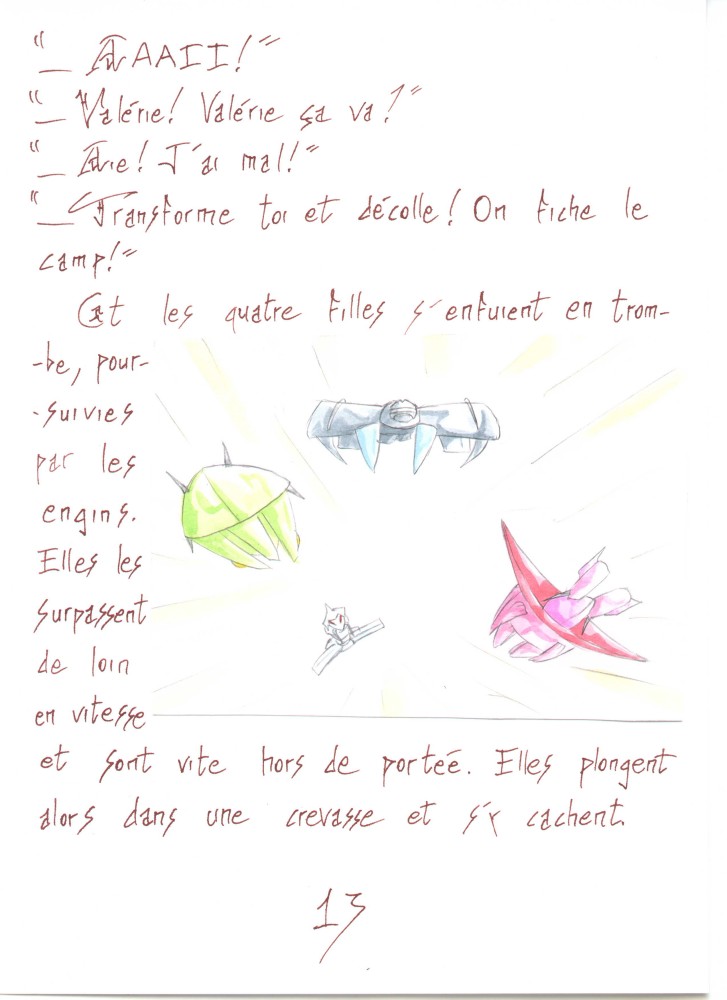 "— AAAAII!"
"— Valérie! Valérie ça va?"
"— Aïe! J'ai mal!"
"— Transforme toi et décolle! On fiche le
camp!"
Et les quatre filles s'enfuient en trom-
-be, pour-
-suivies
par les
engins.
Elles les
surpassent
de loin
en vitesse
et sont vite hors de porteé. Elles plongent
alors dans une crevasse et s'y cachent.
13